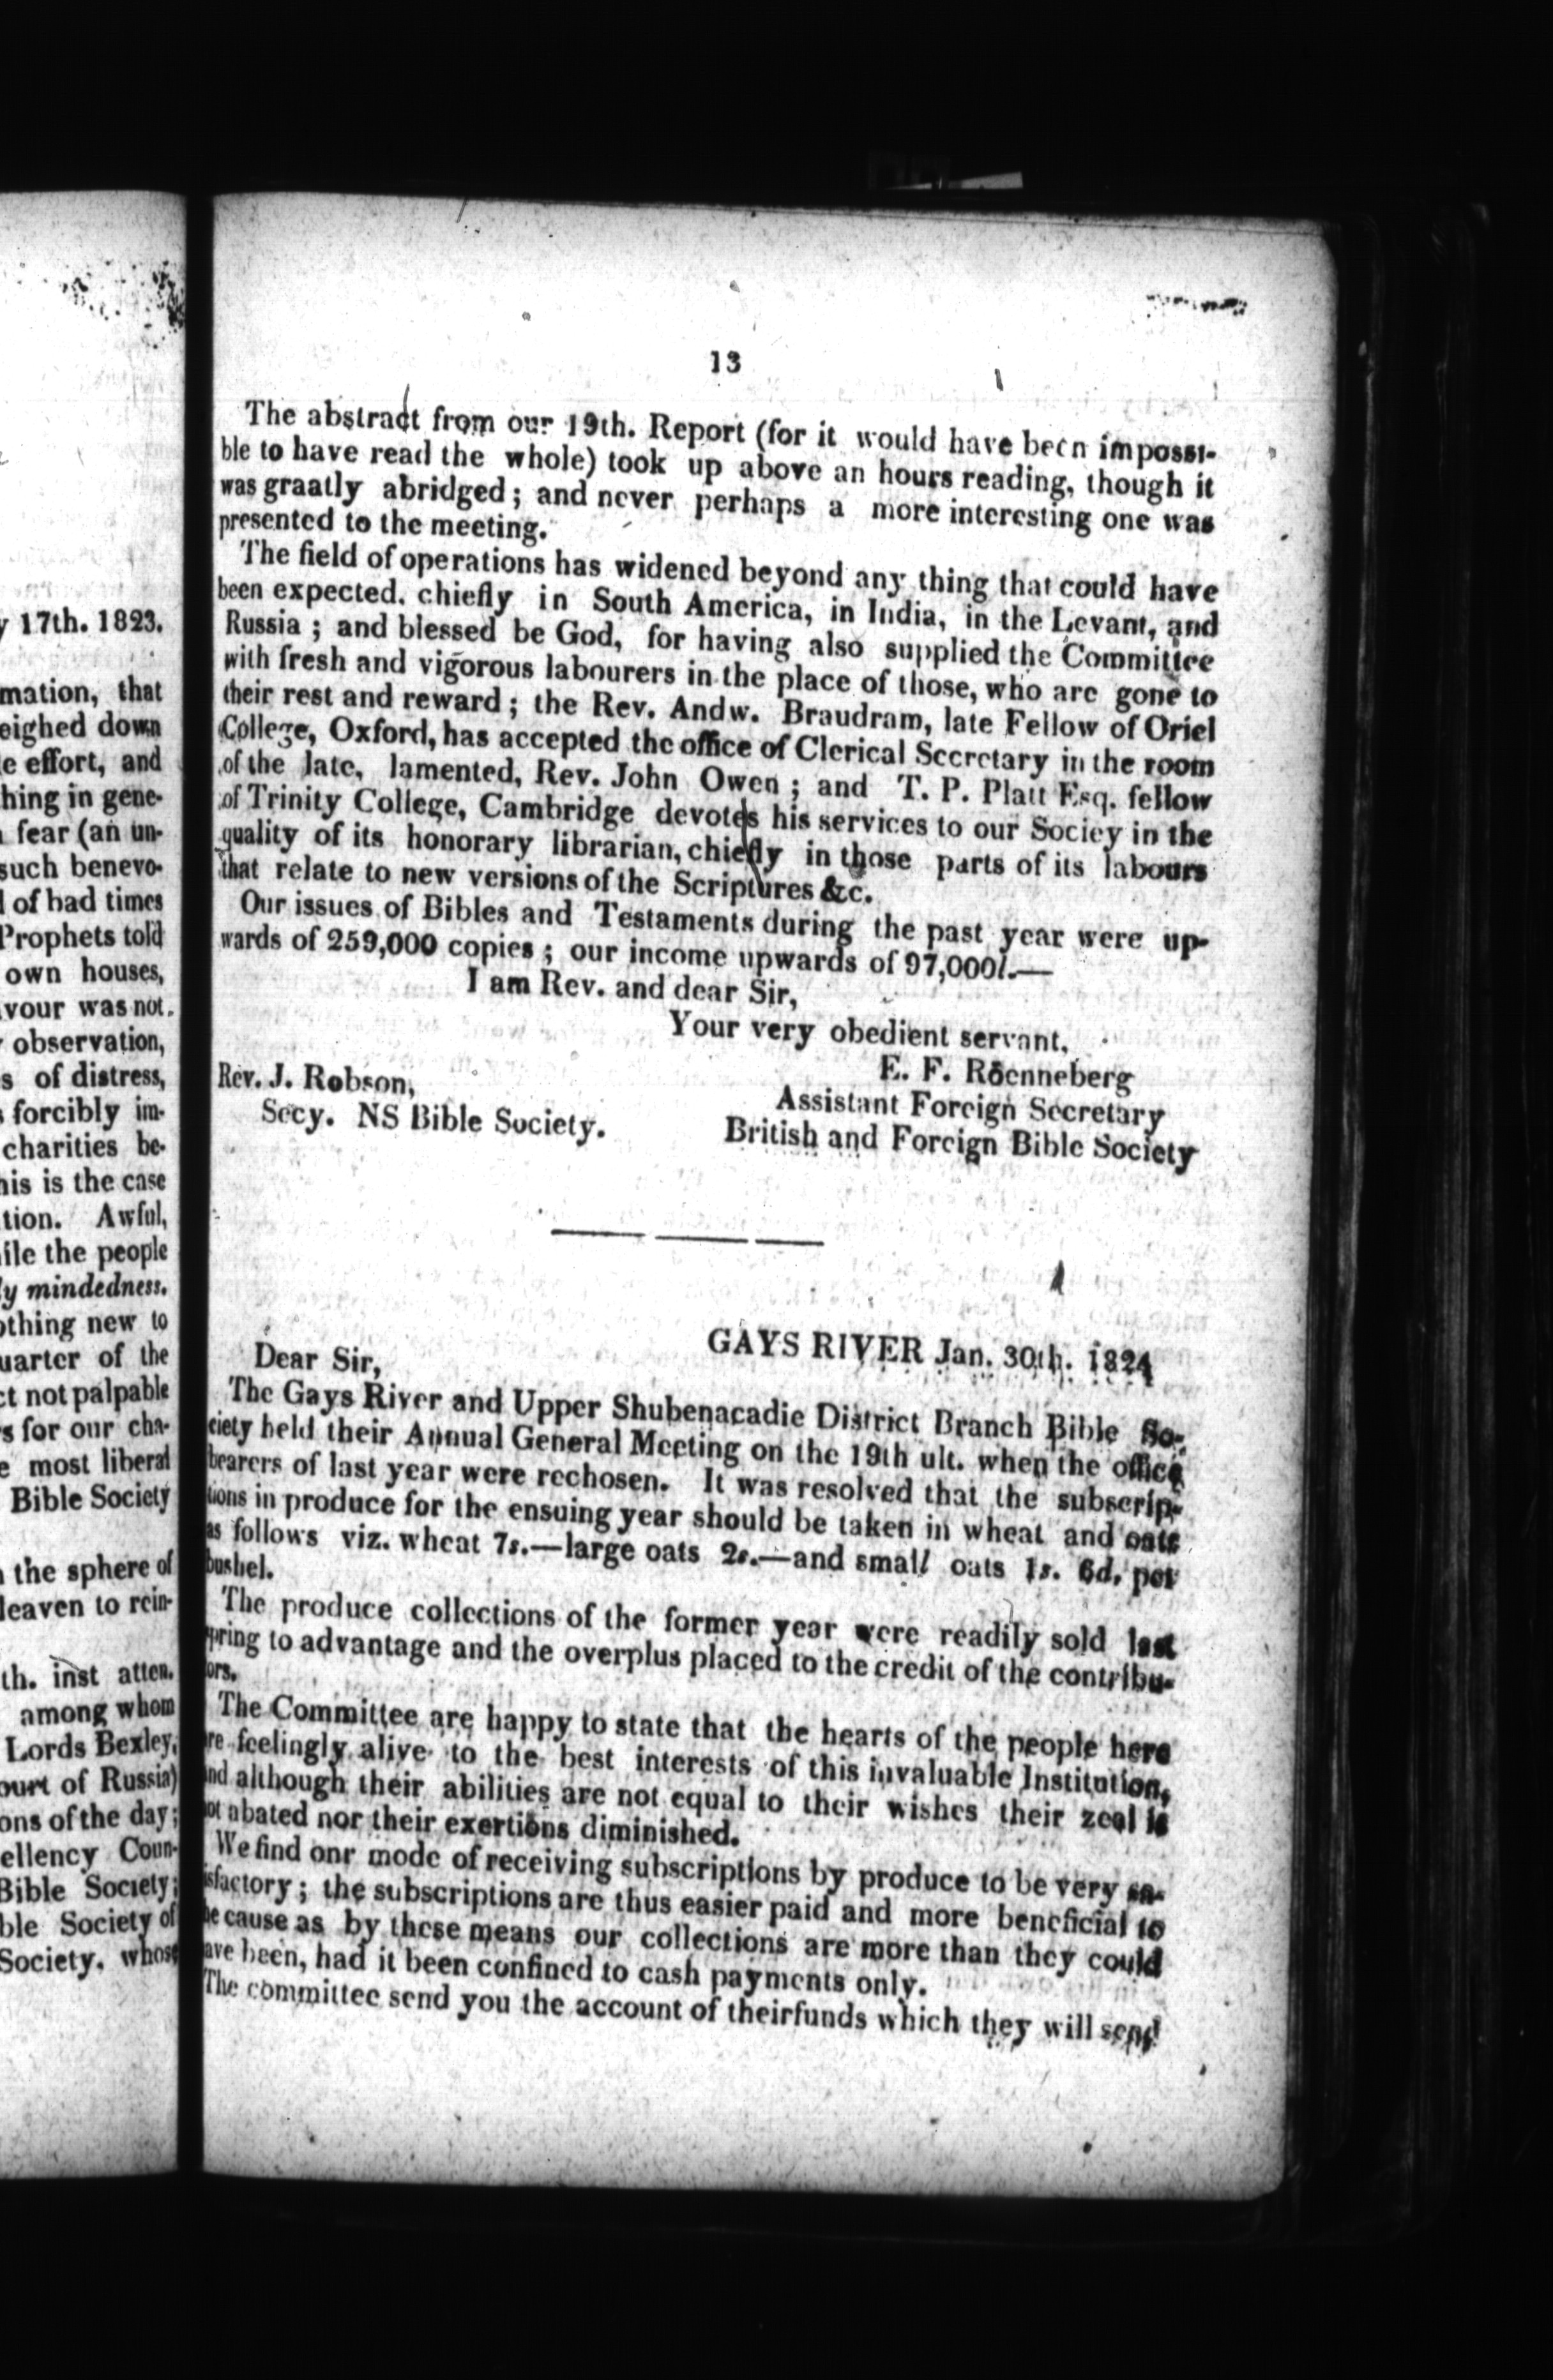 y 17th. 1823.
mation, that
eighed down
e effort, and
hing in gene-
fear (an un-
such benevo-
of bad times
Prophets told
own houses,
vour was not.
observation,
s of distress,
forcibly im-
charities be-
his is the case
tion. Awful,
ile the people
ly mindedness.
othing new to
uarter of the
ct not palpable
s for our cha-
e most liberal
Bible Society
the sphere of
leaven to rein-
th. inst atten.
among whom
Lords Bexley,
ourt of Russia)
ons of the day;
ellency Coun-
Bible Society;
ble Society of
Society, whose
13
The abstract from our 19th. Report (for it would have been impossi-
ble to have read the whole) took up above an hours reading, though it
was graatly abridged; and never perhaps a more interesting one was
presented to the meeting.
The field of operations has widened beyond any thing that could have
been expected. chiefly in South America, in India, in the Levant, and
Russia; and blessed be God, for having also supplied the Committee
with fresh and vigorous labourers in the place of those, who are gone to
their rest and reward; the Rev. Andw. Braudram, late Fellow of Oriel
College, Oxford, has accepted the office of Clerical Secretary in the room
of the late, lamented, Rev. John Owen; and T. P. Platt Esq. fellow
of Trinity College, Cambridge devotes his services to our Sociey in the
quality of its honorary librarian, chiefly in those parts of its labours
that relate to new versions of the Scriptures &c.
Our issues of Bibles and Testaments during the past year were up-
wards of 259,000 copies; our income upwards of 97,000l.—
I am Rev. and dear Sir,
Your very obedient servant,
E. F. Röenneberg
Rev. J. Robson,
Assistant Foreign Secretary
Secy. NS Bible Society.
British and Foreign Bible Society
GAYS RIVER Jan. 30th. 1824
Dear Sir,
The Gays River and Upper Shubenacadie District Branch Bible So-
ciety held their Annual General Meeting on the 19th ult. when the office
bearers of last year were rechosen. It was resolved that the subscrip-
tions in produce for the ensuing year should be taken in wheat and oats
as follows viz. wheat 7s.—large oats 2s.—and small oats 1s. 6d. per
bushel.
The produce collections of the former year were readily sold last
spring to advantage and the overplus placed to the credit of the contribu-
ors.
The Committee are happy to state that the hearts of the people here
re feelingly alive to the best interests of this invaluable Institution,
and although their abilities are not equal to their wishes their zeal is
not abated nor their exertions diminished.
We find onr mode of receiving subscriptions by produce to be very sa-
isfactory; the subscriptions are thus easier paid and more beneficial to
he cause as by these means our collections are more than they could
ave been, had it been confined to cash payments only.
The committee send you the account of theirfunds which they will send